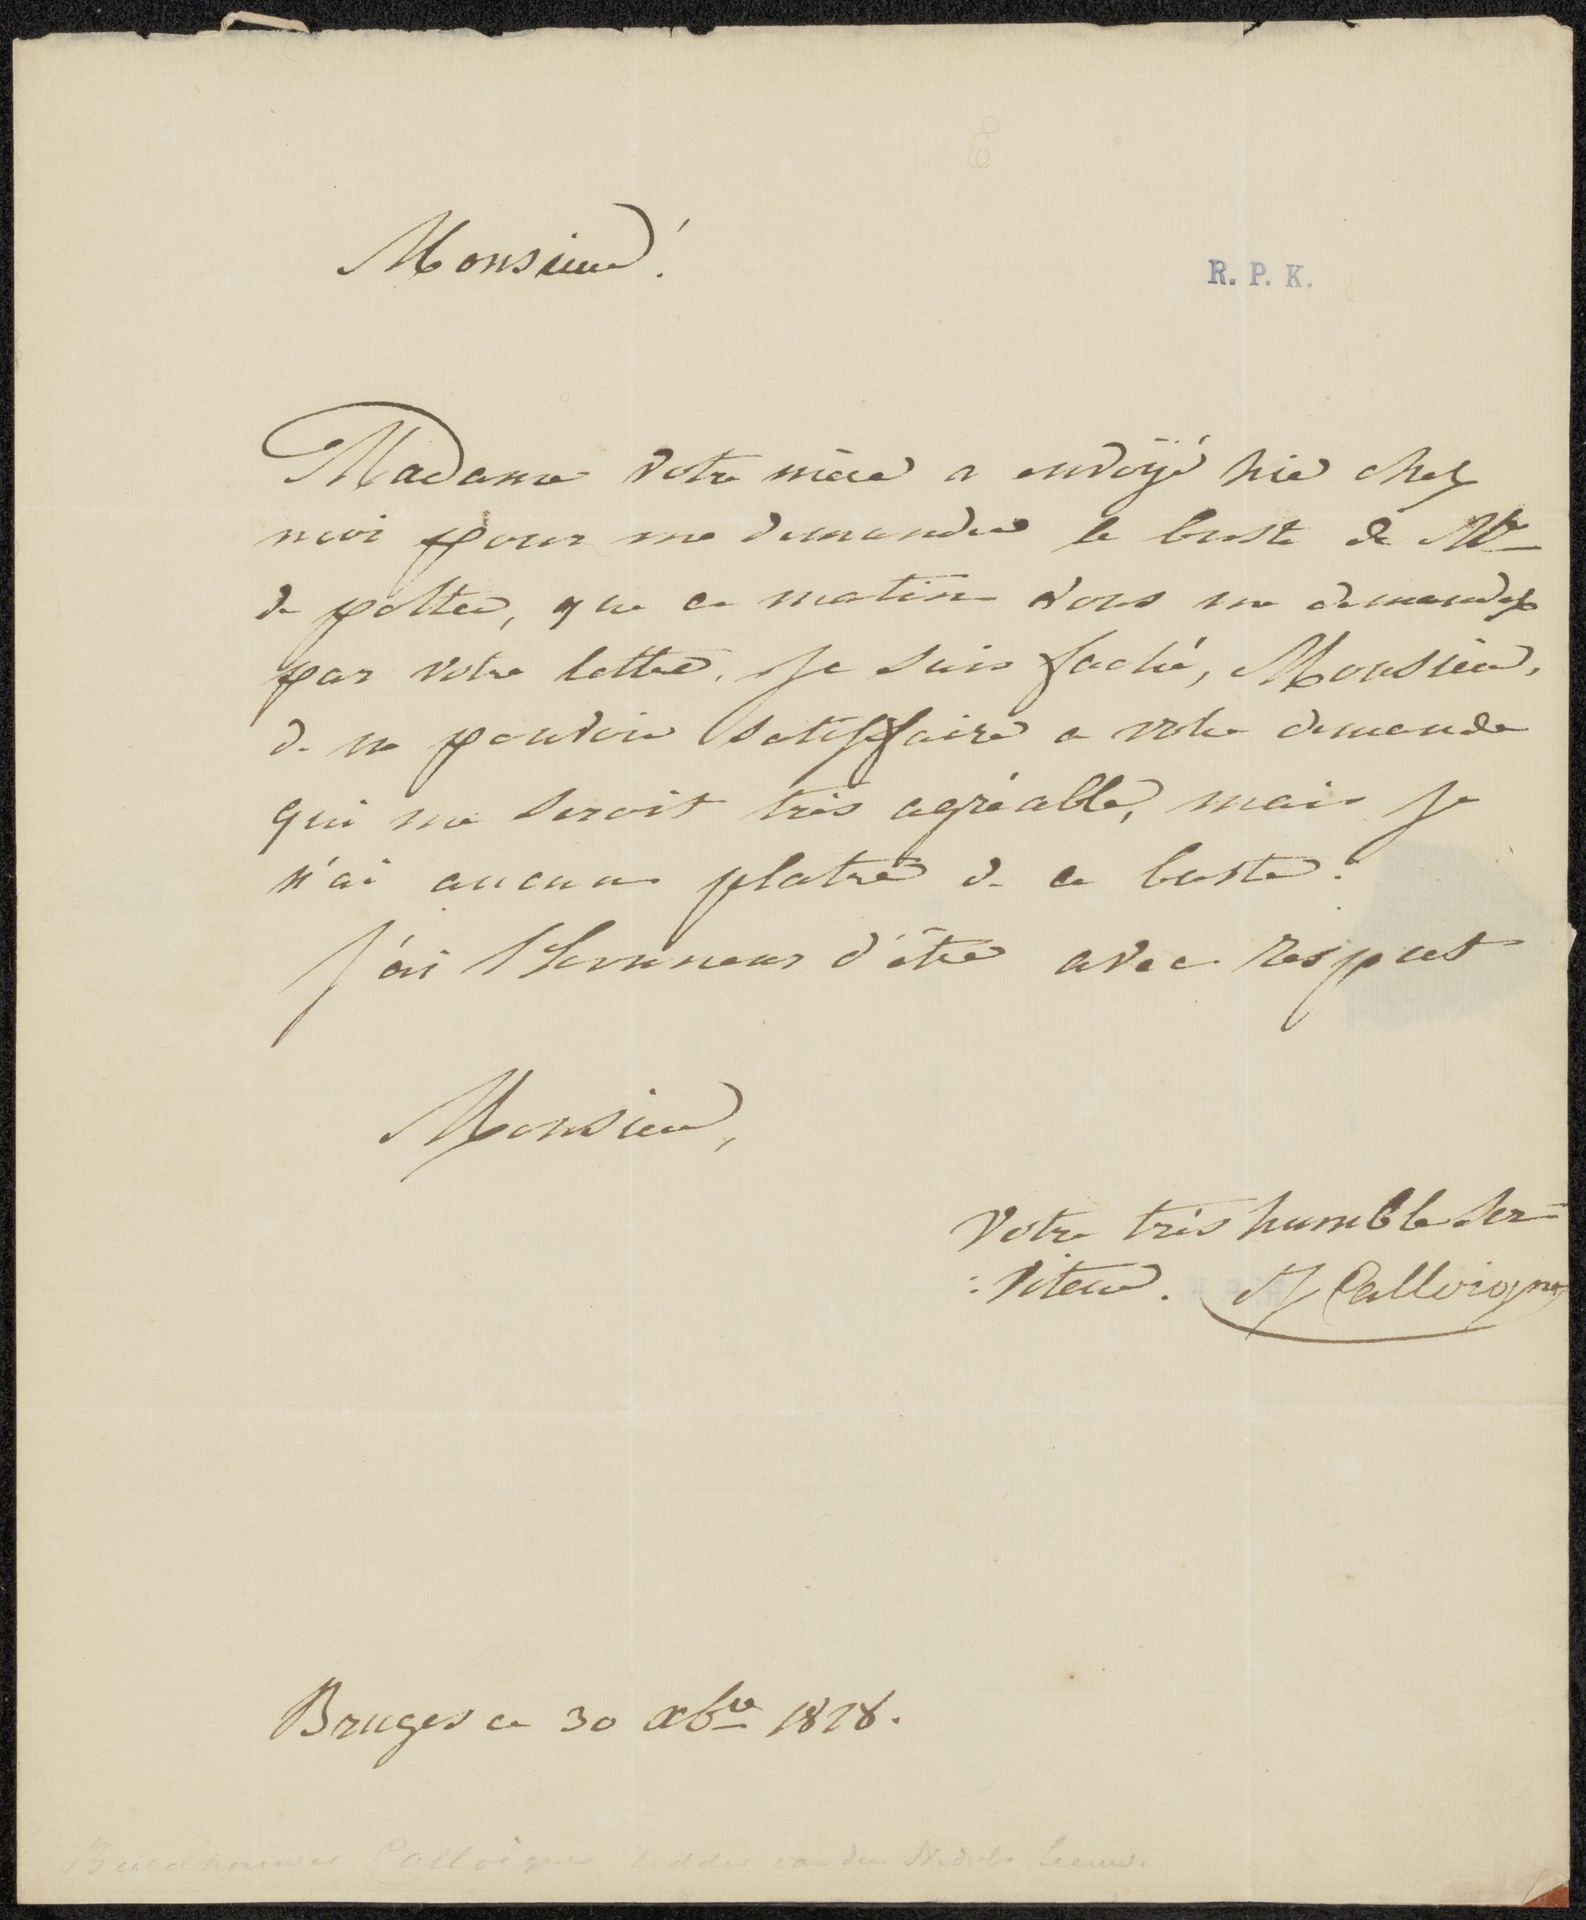 Monsieur!
R. P. K.
Madame votre mère a envoÿé hier chez
moi pour me demander le buste de Mr
de potter, que ce matin vous me demandez
par votre lettre. Je suis faché, Monsieur,
de ne pouvoir satisfaire a votre demande
qui me seroit très agréable, mais je
n'ai aucun platre de ce buste.
J'ai l'honneur d'être avec respect
Monsieur,
Votre très humble ser=
:viteur. J Calloigne
Bruges ce 30 xbre 1828.
Beeldhouwer Calloigne Ridder van den Nederl. Leeuw.